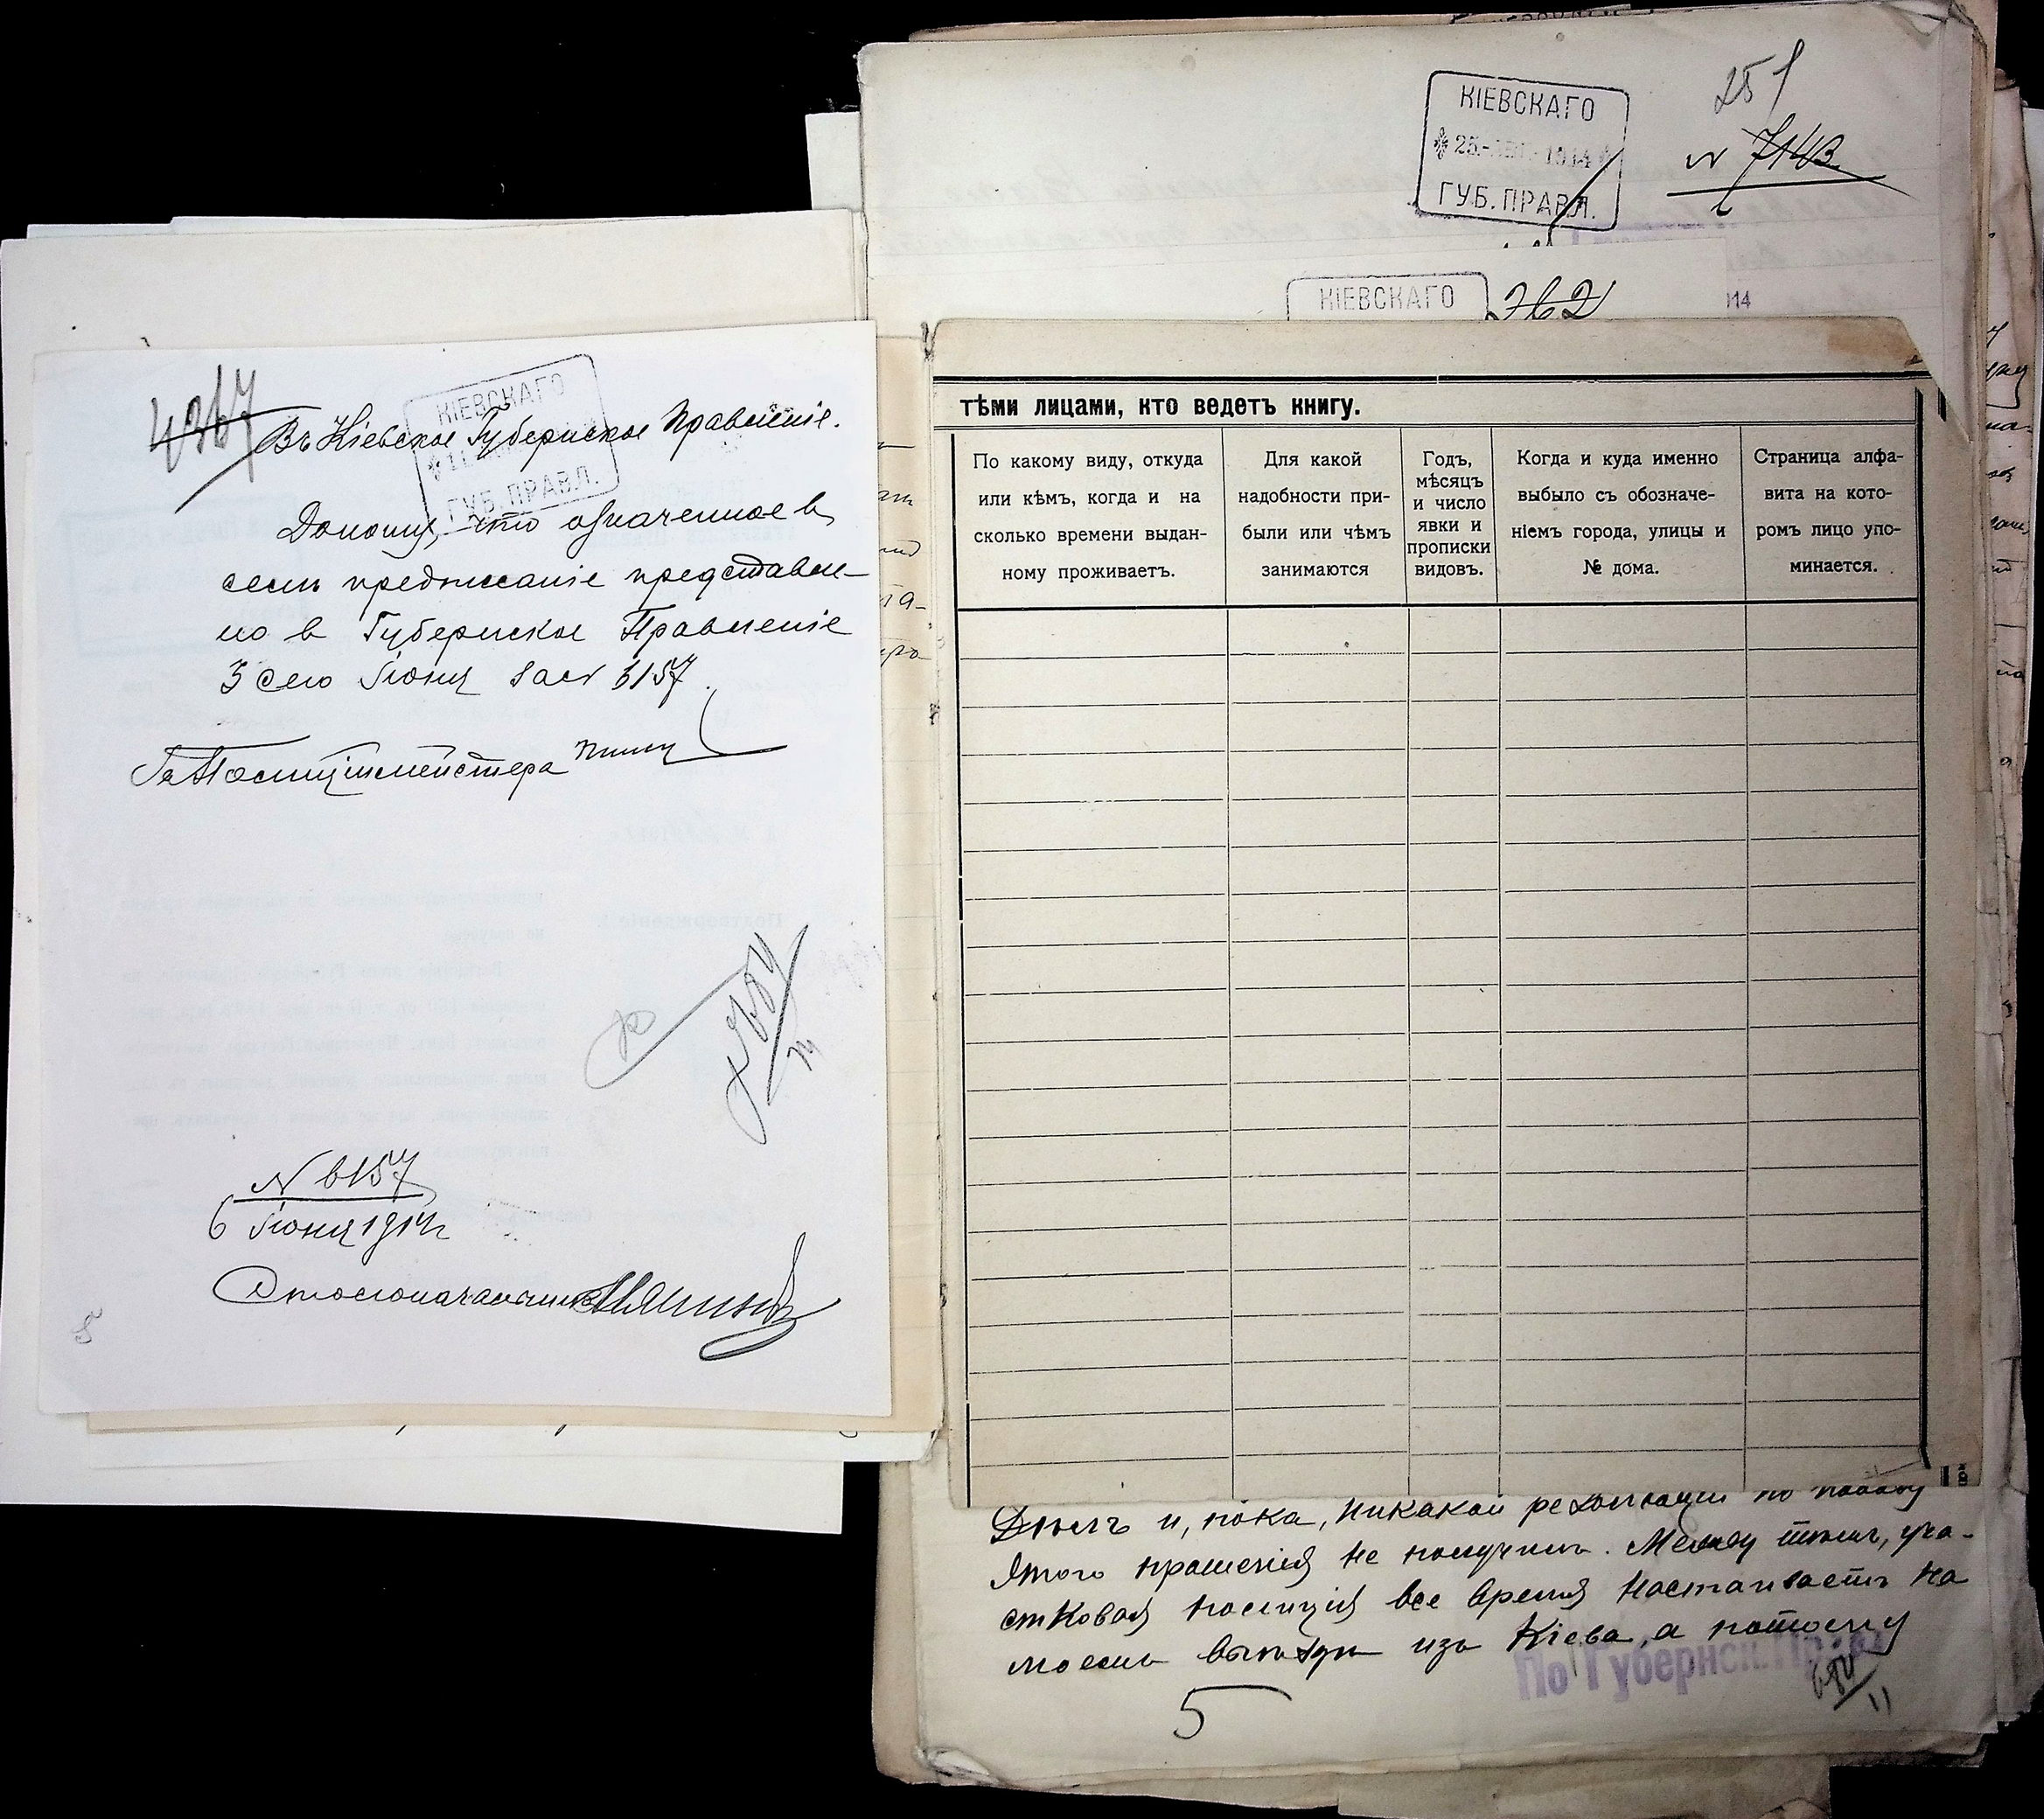 4367
КІЕВСКАГО
ГУБ. ПРАВЛ.
Въ Кіевское Губернское Правленіе.
Доношу, что означенное в
семъ предписаніе представле-
но в Губернское Правленіе
3 сего Іюня за №
За Полиціймейстера
№ 6157
6 Іюня 1914 г
Столоначальникъ
5
КІЕВСКАГО
25 1914
ГУБ. ПРАВЛ.
251
№ 7143
КІЕВСКАГО
762
914
тѣми лицами, кто ведетъ книгу.
По какому виду, откуда
или кѣмъ, когда и на
сколько времени выдан-
ному проживаетъ.
Для какой
надобности при-
были или чѣмъ
занимаются
Годъ,
мѣсяцъ
и число
явки и
прописки
видовъ.
Когда и куда именно
выбыло съ обозначе-
ніемъ города, улицы и
№ дома.
Страница алфа-
вита на кото-
ромъ лицо упо-
минается.
и, пока, никакой резолюціи по поводу
этого прошенія не получилъ. Между тѣмъ, уча-
стковая полиція все время настаиваетъ на
моемъ выѣздѣ изъ Кіева, а потому
По Губернск.
5